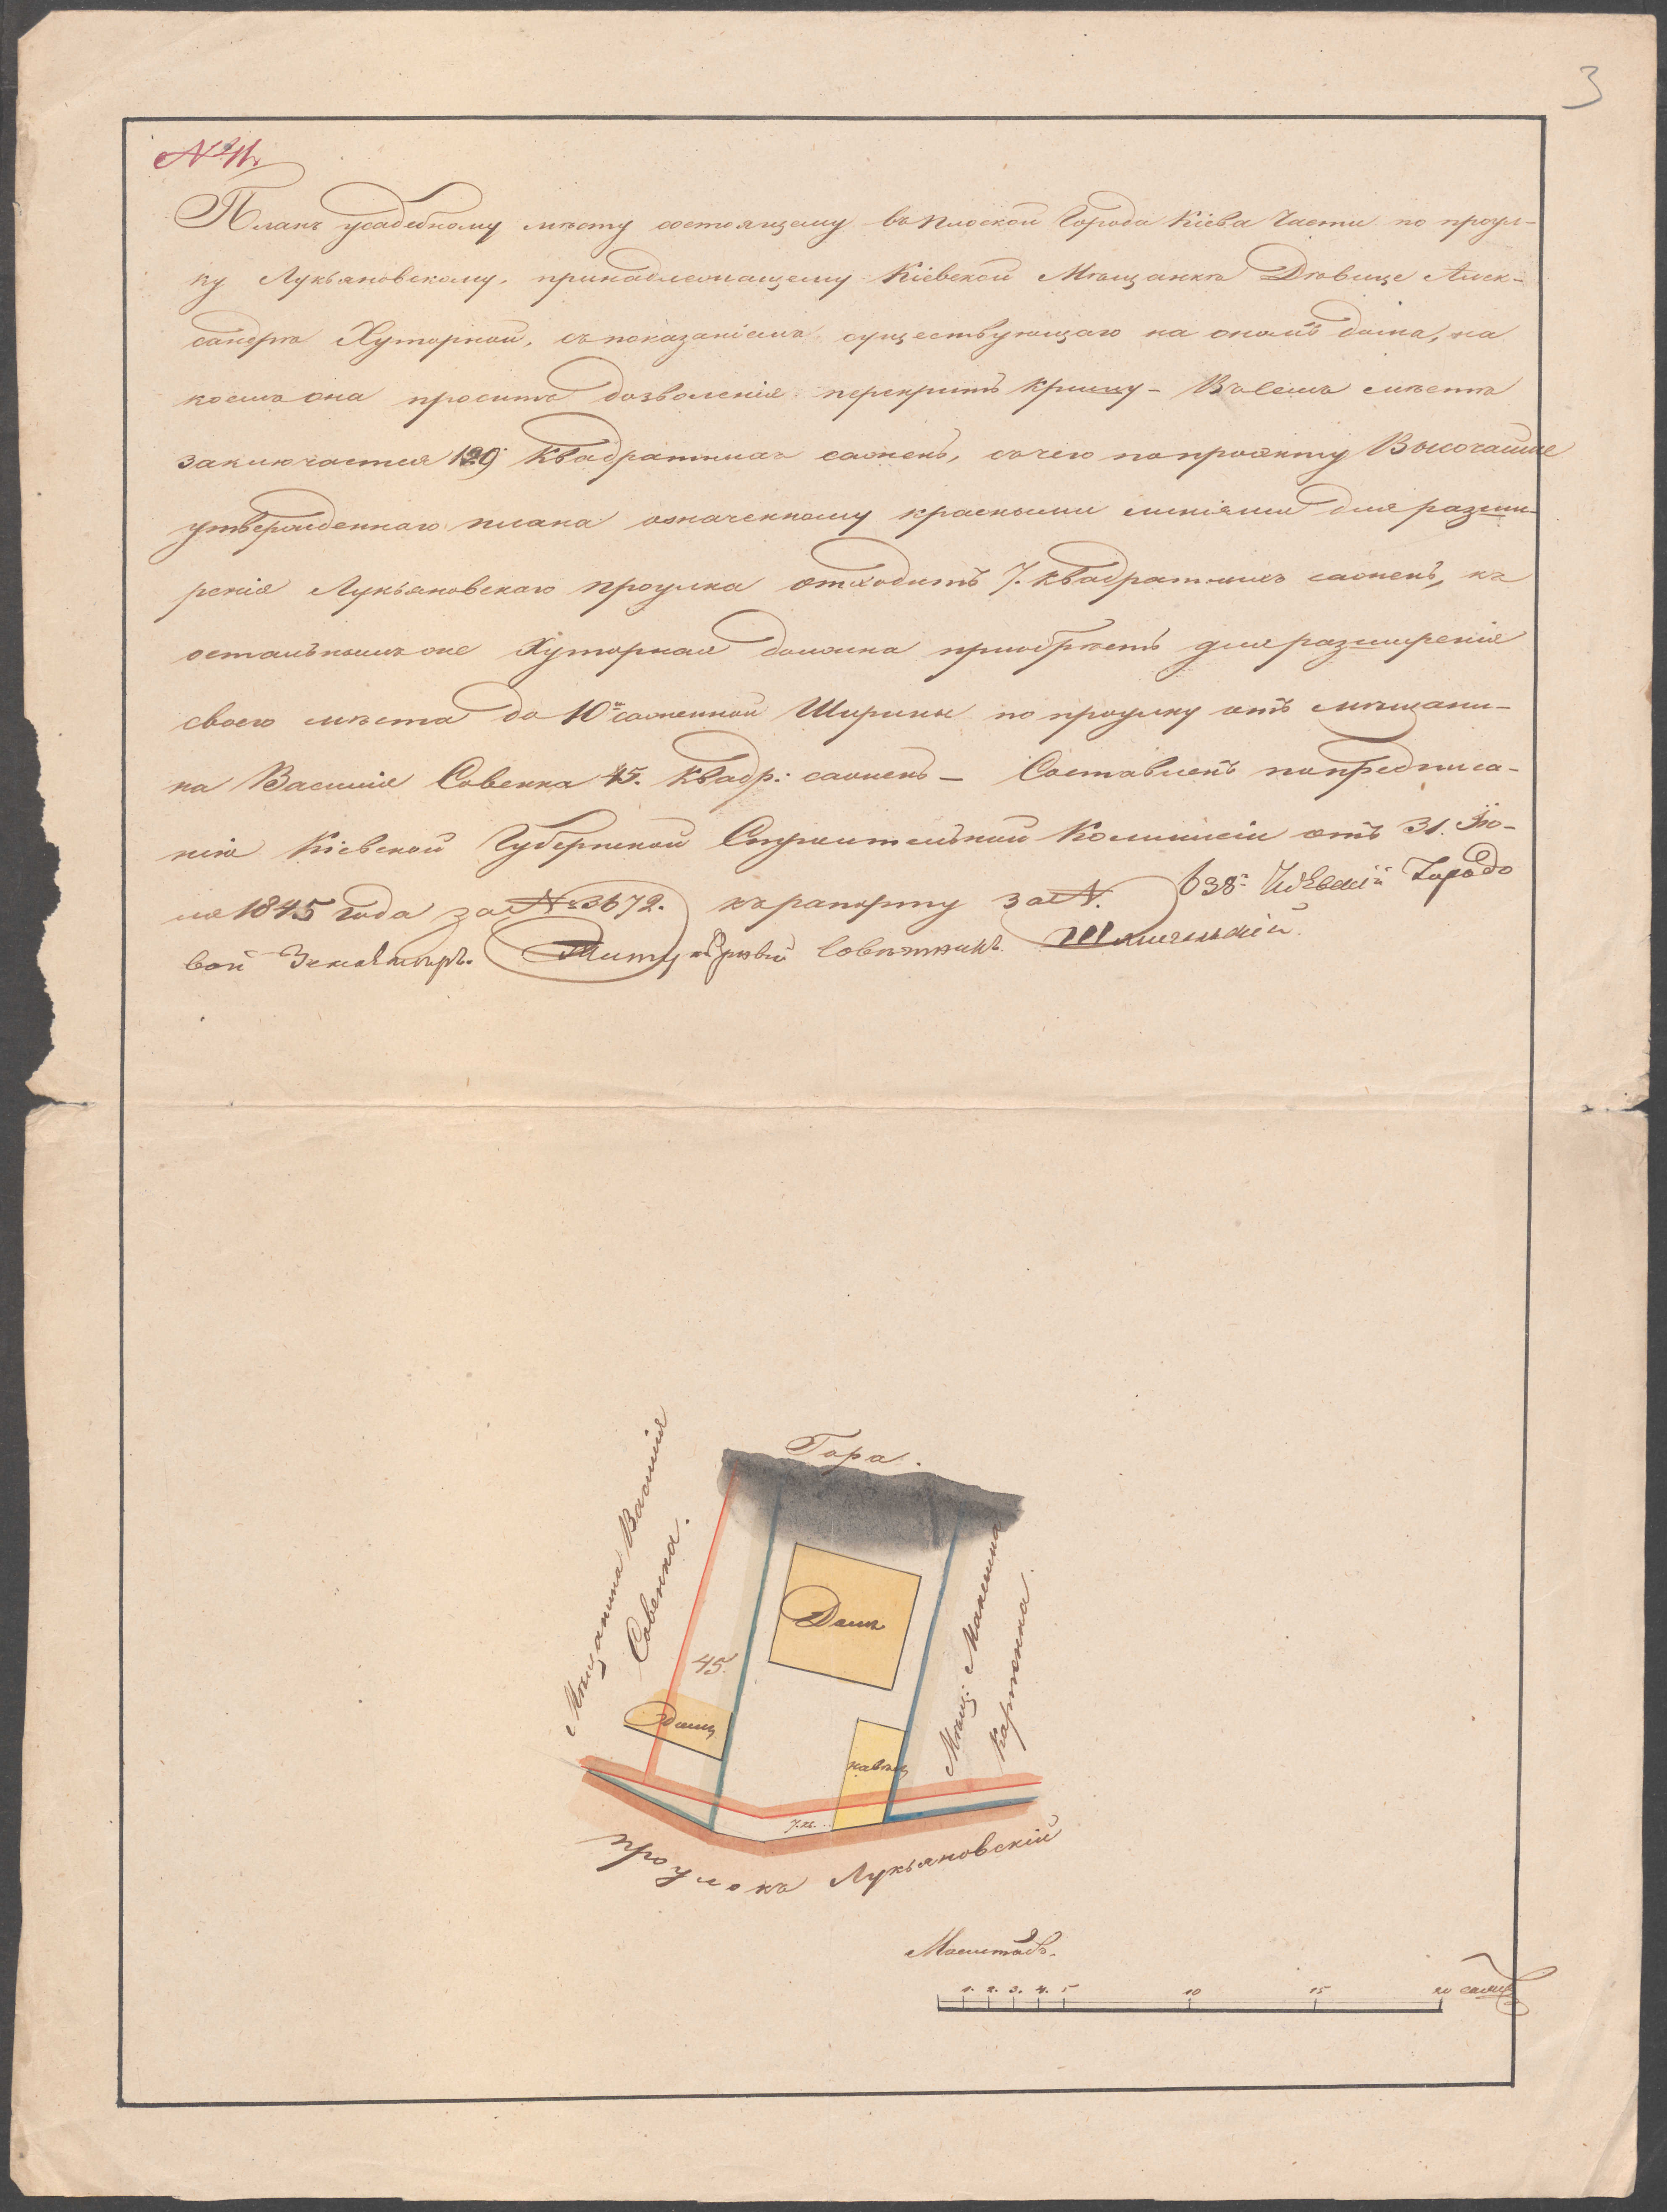 3
№ 11.
Планъ усадебному мѣсту состоящему въ Плоской Города Кіева Части по проул-
ку Лукьяновскому, принадлежащему Кіевской Мѣщанкѣ Дѣвице Алек-
сандрѣ Хуторной, съ показаніемъ существующаго на ономъ дома, на
коемъ она проситъ дозволенія перекрить кришу – Въ семъ мѣстѣ
заключается 129 Квадратныхъ сажень, съ чего по проэкту Высочайше
утвержденнаго плана означенному красными линіями для разши-
ренія Лукьяновскаго проулка отходитъ 7. квадратныхъ сажень, къ
остальнымъ же Хуторная должна приобрѣсть для разширенія
своего мѣста до 10и саженной Ширины по проулку отъ мѣщани-
на Василія Савенка 45. Квадр: сажень – Составленъ по предписа-
нію Кіевской Губернской Строительной Коммиссіи отъ 31. Iю-
ля 1845 года за № 3672. къ рапорту за №. 638. Кіевскій Городо
вой Землемѣръ. Титулярный Совѣтникъ
Гора.
Мѣщанина Василія
Савенка.
45.
Домъ
Домъ
навѣсъ
Мѣщ: Максима
Карпенка.
7.
проулокъ Лукьяновскій
Масштабъ.
1. 2. 3. 4. 5 10 15 20 саж